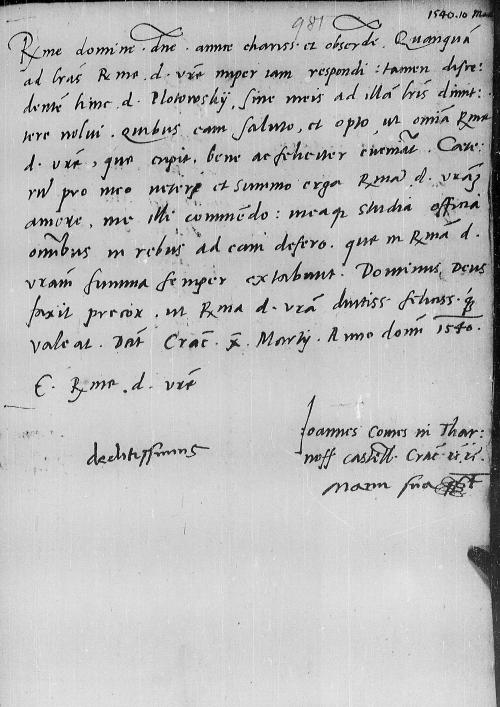 1540.10 Mar
981
Rme domine dne amice chariss: et obserde. Quanquā
ad lrās Rme d. vrē nuper iam respondi: tamen disce:
dentē hinc d. Plotowskij, sine meis ad illā lrīs dimit:
tere nolui. Quibus eam saluto, et opto, ut omīa Rma
d. vrē, que cupit, bene ac feliciter eveniāt. Cete:
rū pro meo vetere et summo erga Rmā d. vrāȝ
amore, me illi commēdo: meaqȝ studia officia
omībus in rebus ad eam defero. que in Rmā d.
vram summa semper extabunt. Dominus Deus
faxit precor, ut Rma d. vrā diutiss: feliciss: qȝ
valeat. Dat Crac. x. Martij. Anno domī 1540.
E. Rme d. vrē
deditissimus
Joannes Comes in Thar:
noff Castell. Crac. ɾc. ɾc.
Manu sua sst